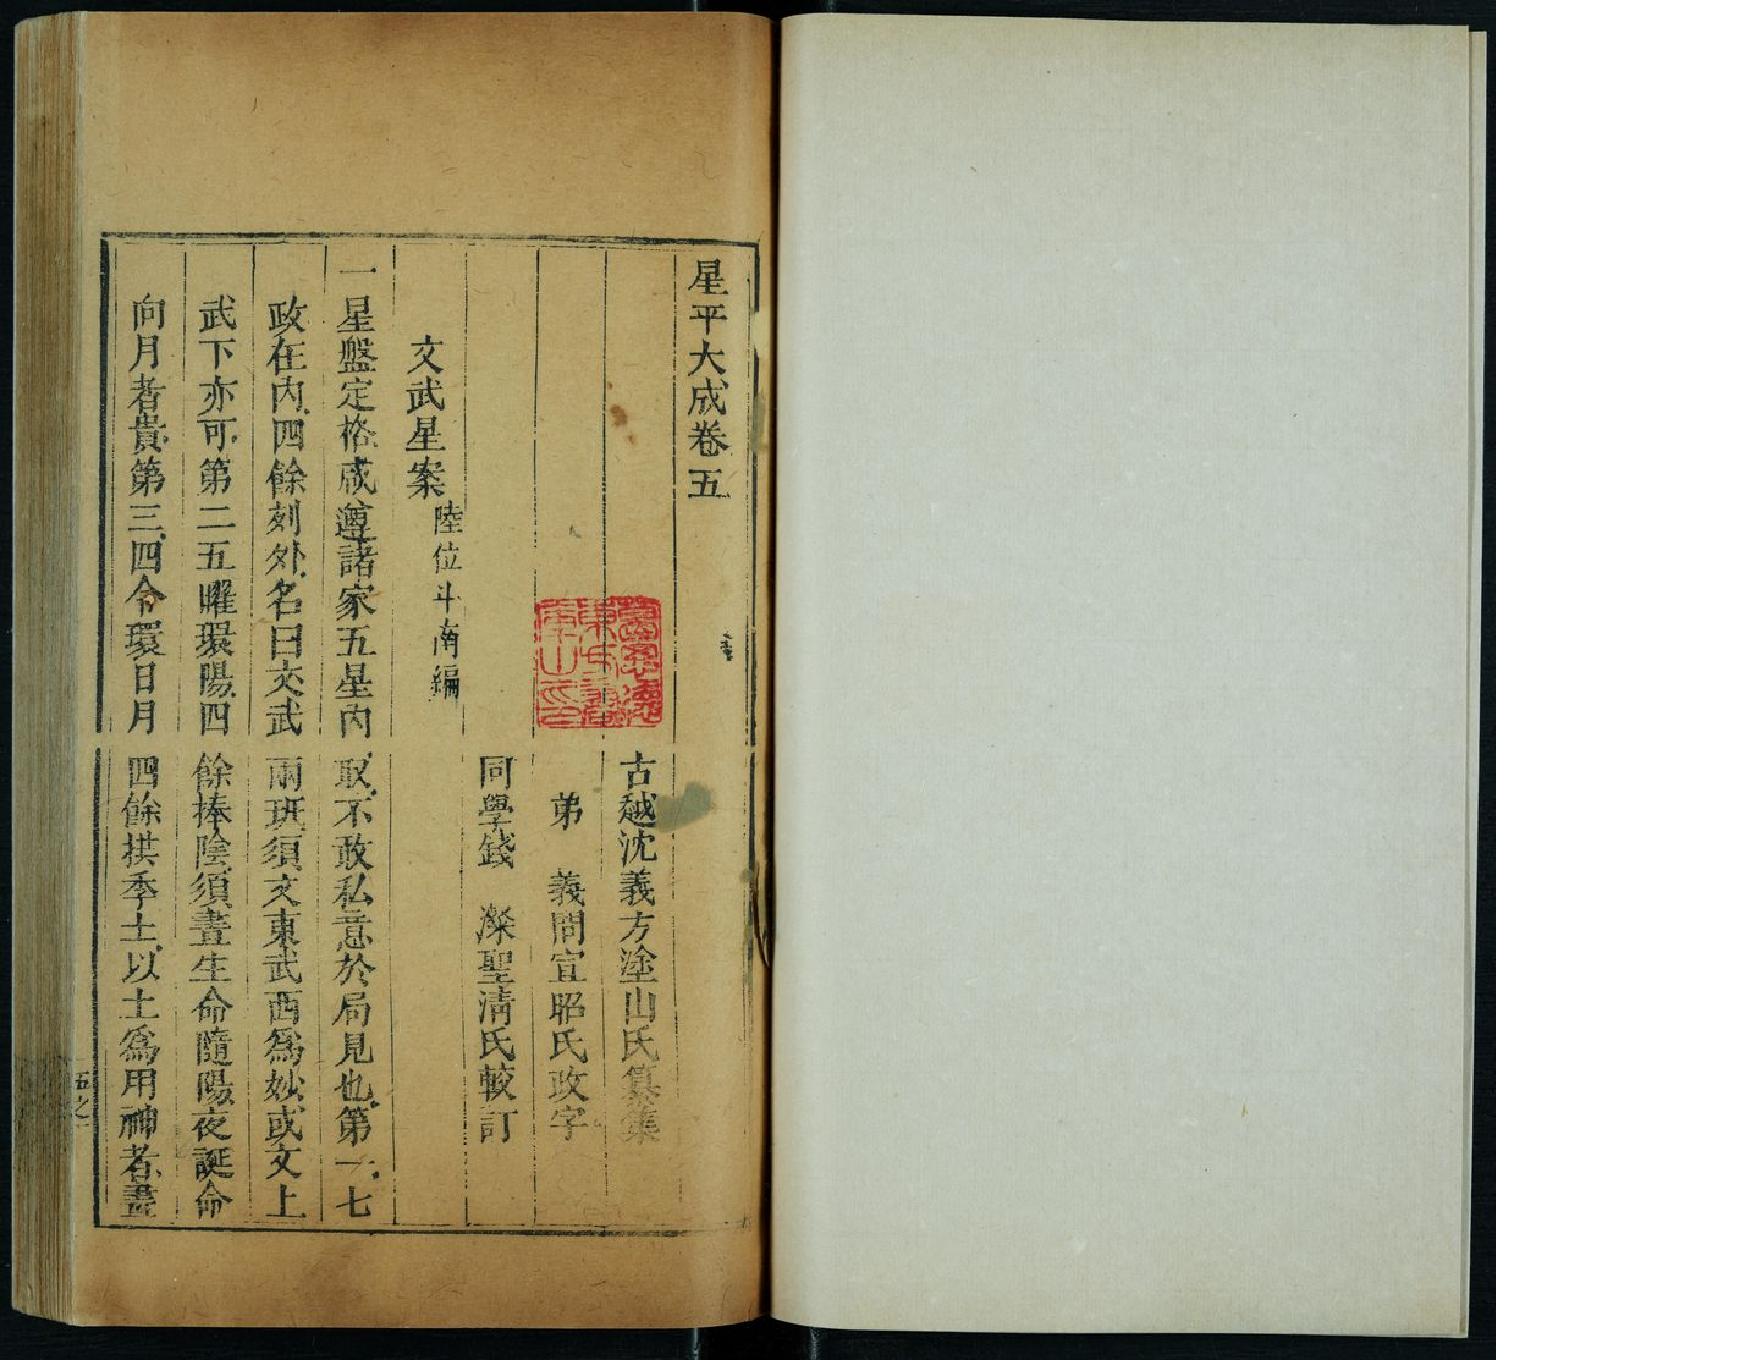 星平大成卷五
古越沈義方塗山氏纂集
弟　義問宣昭氏政字
同學錢　濴聖淸氏較訂
文武星案
陸位斗南編
一星盤定格咸遵諸家五星內取不敢私意於局見也第一七
政在內四餘列外名曰文武兩班須文東武西爲妙或文上
武下亦可第二五曜環陽四餘捧陰須晝生命隨陽夜誕命
向月者貴第三四令環日月四餘拱季土以土爲用神者晝
五之一